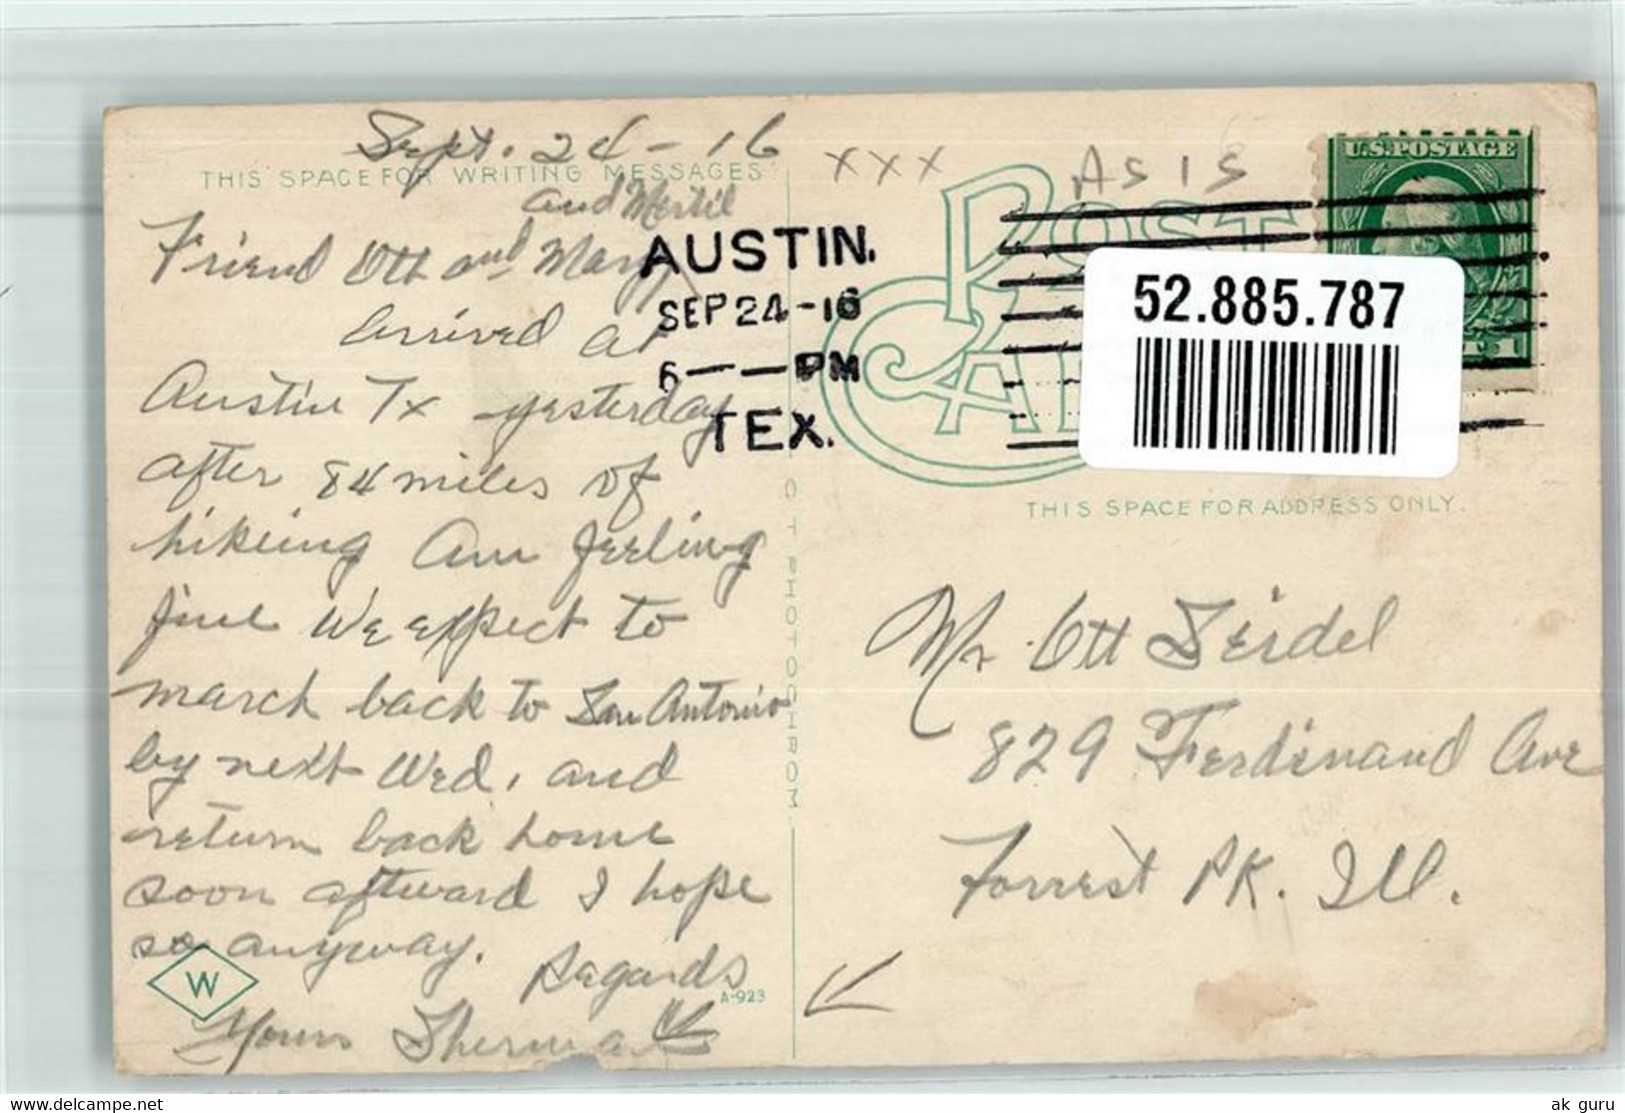 Sept. 24 - 16
THIS SPACE FOR WRITING MESSAGES
and Mertil
Friend Ott and Mary
Arrived at
Austin Tx yesterday
after 84 miles of
hikeing Am feeling
fine We expect to
march back to San Antonio
by next Wed, and
return back home
soon aftward I hope
so anyway.
Regards
W
A-923
Yours Sherman
AUSTIN.
SEP 24 - 16
6 — — PM
TEX.
C T PHOTOCHROM
XXX
AS IS
POST
U.S. POSTAGE
52.885.787
THIS SPACE FOR ADDRESS ONLY.
Mr. Ott Seidel
829 Ferdinand Ave
Forrest Pk. Ill.
delcampe.net
ak guru